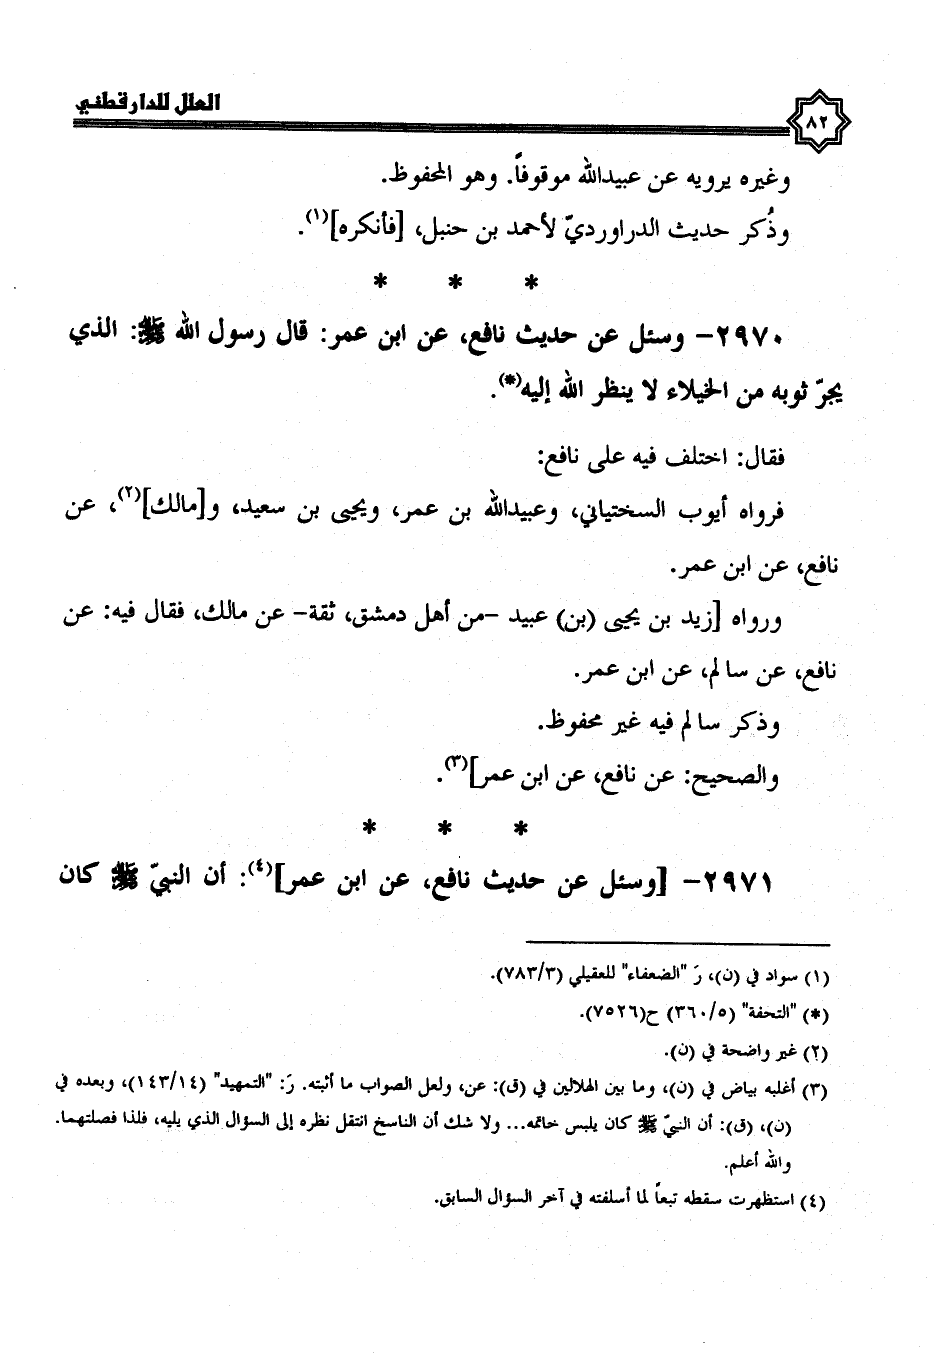 العلل للدارقطني
٨٢
وغيره يرويه عن عبيدالله موقوفاً. وهو المحفوظ.
وذُكر حديث الدراورديّ لأحمد بن حنبل، [فأنكره](١).
* * *
٢٩٧٠- وسئل عن حديث نافع، عن ابن عمر: قال رسول الله ﷺ: الذي
يجرّ ثوبه من الخيلاء لا ينظر الله إليه(*).
فقال: اختلف فيه على نافع:
فرواه أيوب السختياني، وعبيدالله بن عمر، ويحيى بن سعيد، و[مالك](٢)، عن
نافع، عن ابن عمر.
ورواه [زيد بن يحيى (بن) عبيد -من أهل دمشق، ثقة- عن مالك، فقال فيه: عن
نافع، عن سالم، عن ابن عمر.
وذكر سالم فيه غير محفوظ.
والصحيح: عن نافع، عن ابن عمر](٣).
* * *
٢٩٧١- [وسئل عن حديث نافع، عن ابن عمر](٤): أن النبيّ ﷺ كان
(١) سواد في (ن)، رَ "الضعفاء" للعقيلي (٧٨٣/٣).
(*) "التحفة" (٣٦٠/٥) ح(٧٥٢٦).
(٢) غير واضحة في (ن).
(٣) أغلبه بياض في (ن)، وما بين الهلالين في (ق): عن، ولعل الصواب ما أثبته. رَ: "التمهيد" (١٤٣/١٤)، وبعده في
(ن)، (ق): أن النبيّ ﷺ كان يلبس خاتمه... ولا شك أن الناسخ انتقل نظره إلى السؤال الذي يليه، فلذا فصلتهما.
والله أعلم.
(٤) استظهرت سقطه تبعاً لما أسلفته في آخر السؤال السابق.